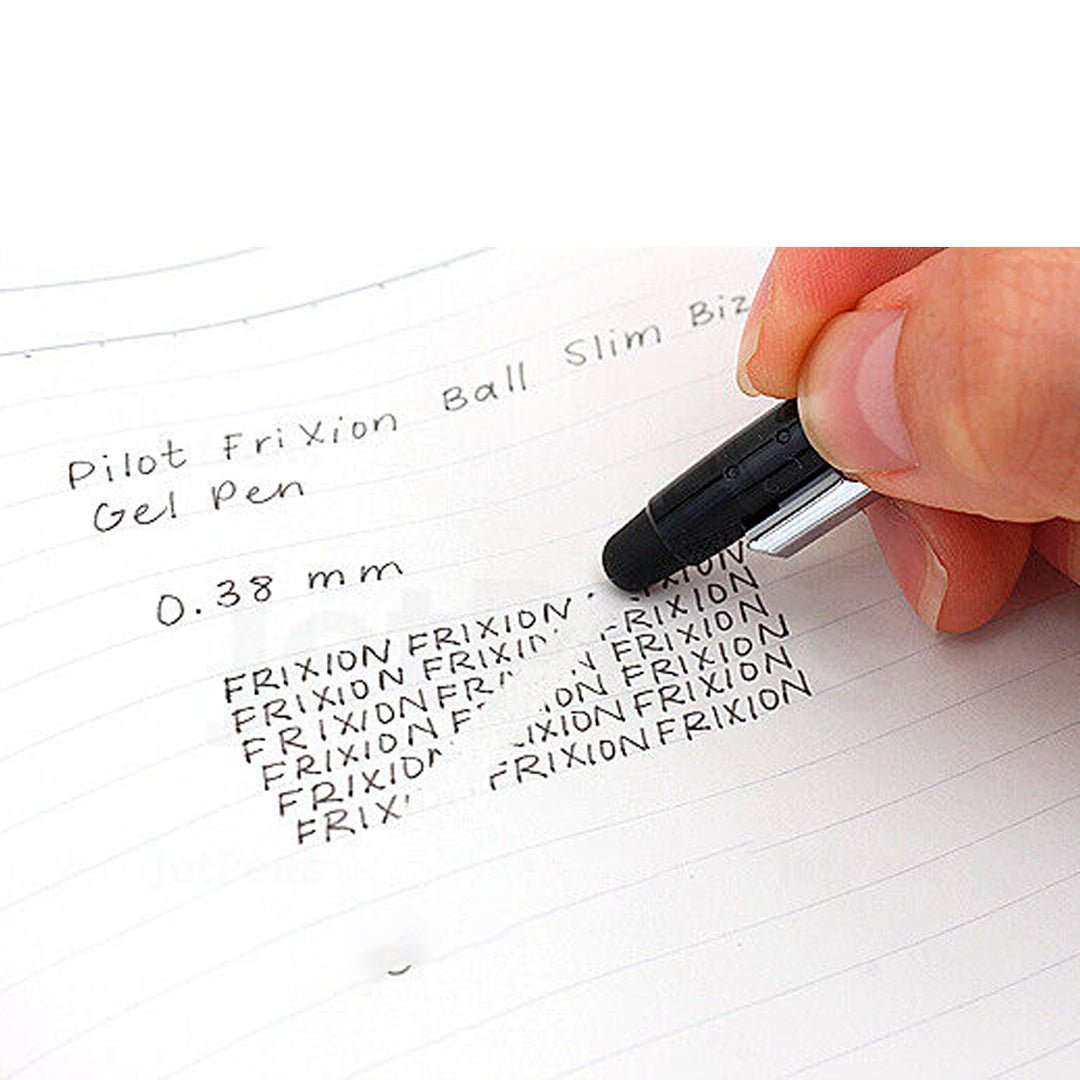 Pilot FriXion Ball Slim Biz
Gel Pen
0.38 mm
FRIXION FRIXION
FRIXION FRIXI FRIXION
FRIXION FR FRIXION
FRIXION F ION FRIXION
FRIXIO IXION FRIXION
FRIX FRIXION FRIXION
JetPens